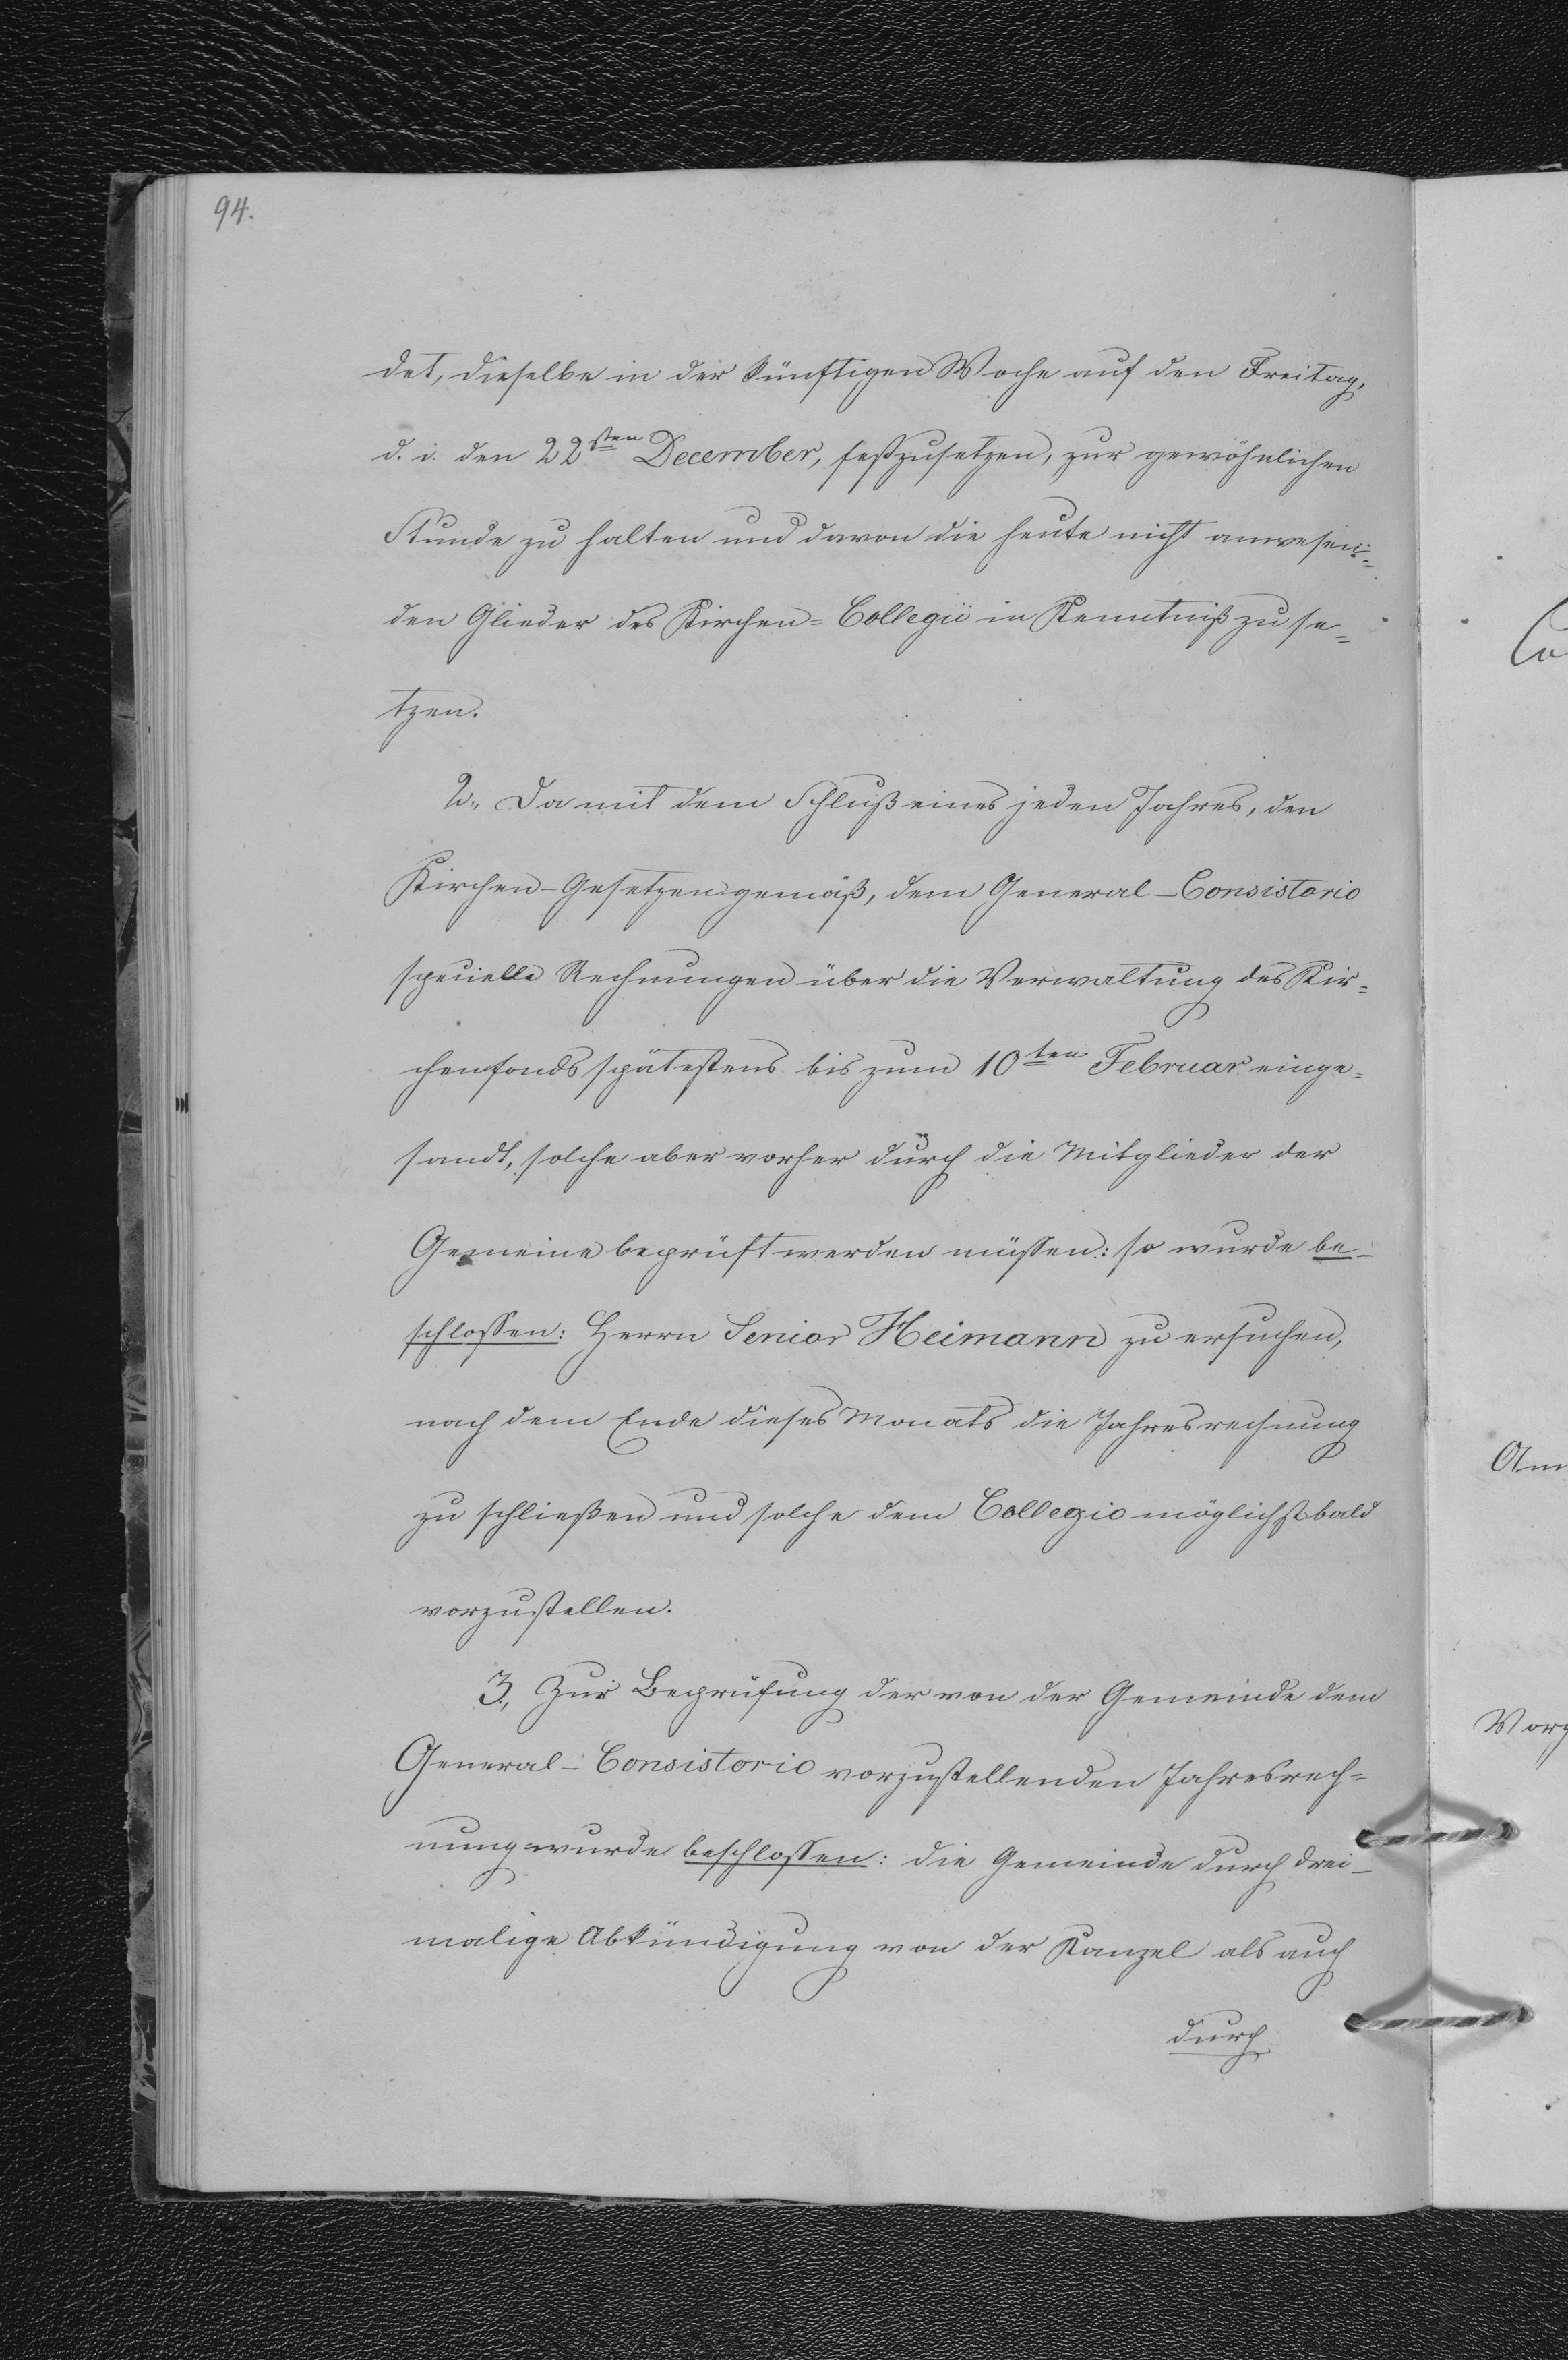 94.
det, dieselbe in der künftigen Woche auf den Freitag,
d. i. den 22sten December, festzusetzen, zur gewöhnlichen
Stunde zu halten und davon die heute nicht anwesen=
den Glieder des Kirchen=Collegii in Kenntniß zu se=
tzen.
2., Da mit dem Schluß eines jeden Jahres, den
Kirchen-Gesetzen gemäß, dem General-Consistorio
specielle Rechnungen über die Verwaltung des Kir=
chenfonds spätestens bis zum 10ten Februar einge=
sandt, solche aber vorher durch die Mitglieder der
Gemeine beprüft werden müssen: so wurde be-
schlossen: Herrn Senior Heimann zu ersuchen,
nach dem Ende dieses Monats die Jahresrechnung
zu schließen und solche dem Collegio möglichst bald
vorzustellen.
3., Zur Beprüfung der von der Gemeinde dem
General-Consistorio vorzustellenden Jahresrech=
nung wurde beschlossen: die Gemeinde durch drei-
malige Abkündigung von der Kanzel als auch
durch
Co
Am
Vorg